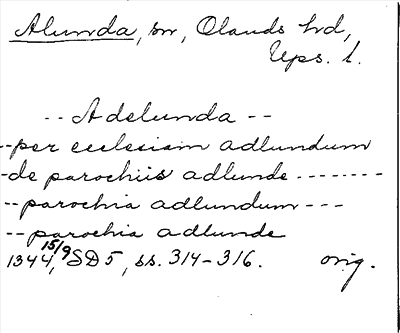 Alunda, sn, Olands hd,
Ups. l.
-- Adelunda --
--per ecclesiam adlundum
-de parochiis adlunde --------
-- parochia adlundum ---
-- parochia adlunde
1344 15/9, SD 5, ss. 314-316. orig.